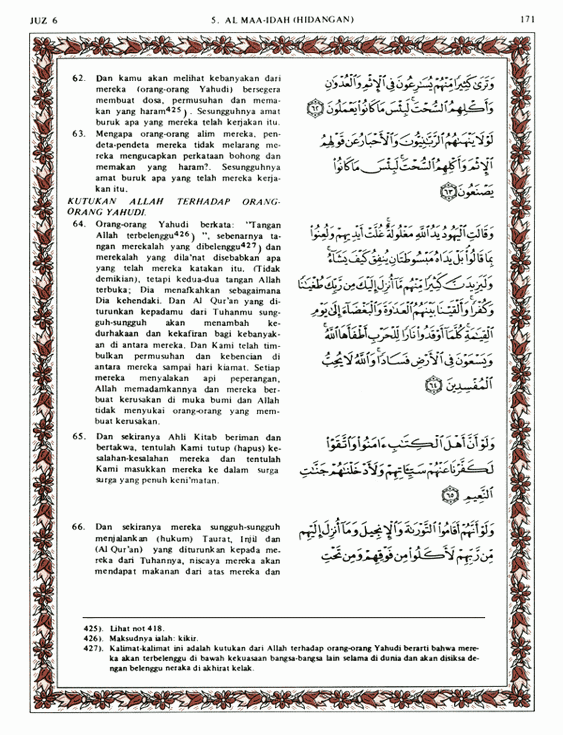 JUZ 6 5. AL MAA-IDAH (HIDANGAN) 171
62. Dan kamu akan melihat kebanyakan dari
mereka (orang-orang Yahudi) bersegera
membuat dosa, permusuhan dan mema-
kan yang haram425). Sesungguhnya amat
buruk apa yang mereka telah kerjakan itu.
63. Mengapa orang-orang alim mereka, pen-
deta-pendeta mereka tidak melarang me-
reka mengucapkan perkataan bohong dan
memakan yang haram?. Sesungguhnya
amat buruk apa yang telah mereka kerja-
kan itu.
KUTUKAN ALLAH TERHADAP ORANG-
ORANG YAHUDI.
64. Orang-orang Yahudi berkata: "Tangan
Allah terbelenggu426) ", sebenarnya ta-
ngan merekalah yang dibelenggu427) dan
merekalah yang dila'nat disebabkan apa
yang telah mereka katakan itu. (Tidak
demikian), tetapi kedua-dua tangan Allah
terbuka; Dia menafkahkan sebagaimana
Dia kehendaki. Dan Al Qur'an yang di-
turunkan kepadamu dari Tuhanmu sung-
guh-sungguh akan menambah ke-
durhakaan dan kekafiran bagi kebanyak-
an di antara mereka. Dan Kami telah tim-
bulkan permusuhan dan kebencian di
antara mereka sampai hari kiamat. Setiap
mereka menyalakan api peperangan,
Allah memadamkannya dan mereka ber-
buat kerusakan di muka bumi dan Allah
tidak menyukai orang-orang yang mem-
buat kerusakan.
65. Dan sekiranya Ahli Kitab beriman dan
bertakwa, tentulah Kami tutup (hapus) ke-
salahan-kesalahan mereka dan tentulah
Kami masukkan mereka ke dalam surga
surga yang penuh keni'matan.
66. Dan sekiranya mereka sungguh-sungguh
menjalankan (hukum) Taurat, Injil dan
(Al Qur'an) yang diturunkan kepada me-
reka dari Tuhannya, niscaya mereka akan
mendapat makanan dari atas mereka dan
وَتَرَىٰ كَثِيرًا مِنْهُمْ يُسَٰرِعُونَ فِي ٱلْإِثْمِ وَٱلْعُدْوَٰنِ
وَأَكْلِهِمُ ٱلسُّحْتَ ۚ لَبِئْسَ مَا كَانُوا۟ يَعْمَلُونَ ٦٢
لَوْلَا يَنْهَىٰهُمُ ٱلرَّبَّٰنِيُّونَ وَٱلْأَحْبَارُ عَن قَوْلِهِمُ
ٱلْإِثْمَ وَأَكْلِهِمُ ٱلسُّحْتَ ۚ لَبِئْسَ مَا كَانُوا۟
يَصْنَعُونَ ٦٣
وَقَالَتِ ٱلْيَهُودُ يَدُ ٱللَّهِ مَغْلُولَةٌ ۚ غُلَّتْ أَيْدِيهِمْ وَلُعِنُوا۟
بِمَا قَالُوا۟ ۘ بَلْ يَدَاهُ مَبْسُوطَتَانِ يُنفِقُ كَيْفَ يَشَآءُ ۚ
وَلَيَزِيدَنَّ كَثِيرًا مِّنْهُم مَّآ أُنزِلَ إِلَيْكَ مِن رَّبِّكَ طُغْيَٰنًا
وَكُفْرًا ۚ وَأَلْقَيْنَا بَيْنَهُمُ ٱلْعَدَٰوَةَ وَٱلْبَغْضَآءَ إِلَىٰ يَوْمِ
ٱلْقِيَٰمَةِ ۚ كُلَّمَآ أَوْقَدُوا۟ نَارًا لِّلْحَرْبِ أَطْفَأَهَا ٱللَّهُ ۚ
وَيَسْعَوْنَ فِي ٱلْأَرْضِ فَسَادًا ۚ وَٱللَّهُ لَا يُحِبُّ
ٱلْمُفْسِدِينَ ٦٤
وَلَوْ أَنَّ أَهْلَ ٱلْكِتَٰبِ ءَامَنُوا۟ وَٱتَّقَوْا۟
لَكَفَّرْنَا عَنْهُمْ سَيِّـَٔاتِهِمْ وَلَأَدْخَلْنَٰهُمْ جَنَّٰتِ
ٱلنَّعِيمِ ٦٥
وَلَوْ أَنَّهُمْ أَقَامُوا۟ ٱلتَّوْرَىٰةَ وَٱلْإِنجِيلَ وَمَآ أُنزِلَ إِلَيْهِم
مِّن رَّبِّهِمْ لَأَكَلُوا۟ مِن فَوْقِهِمْ وَمِن تَحْتِ
425). Lihat not 418.
426). Maksudnya ialah: kikir.
427). Kalimat-kalimat ini adalah kutukan dari Allah terhadap orang-orang Yahudi berarti bahwa mere-
ka akan terbelenggu di bawah kekuasaan bangsa-bangsa lain selama di dunia dan akan disiksa de-
ngan belenggu neraka di akhirat kelak.